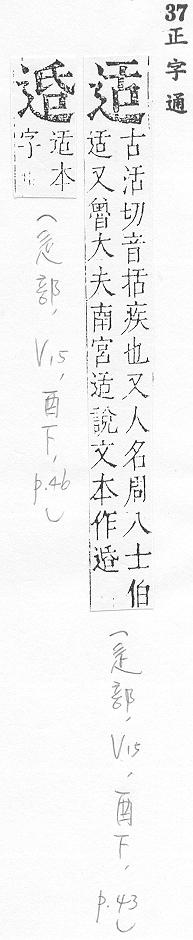 37正字通
适
古活切音括疾也又人名周八士伯
适又魯大夫南宮适說文本作𨓈
(辵部, V15, 酉下, p.43)
适本
字
(辵部, V15, 酉下, p.46)